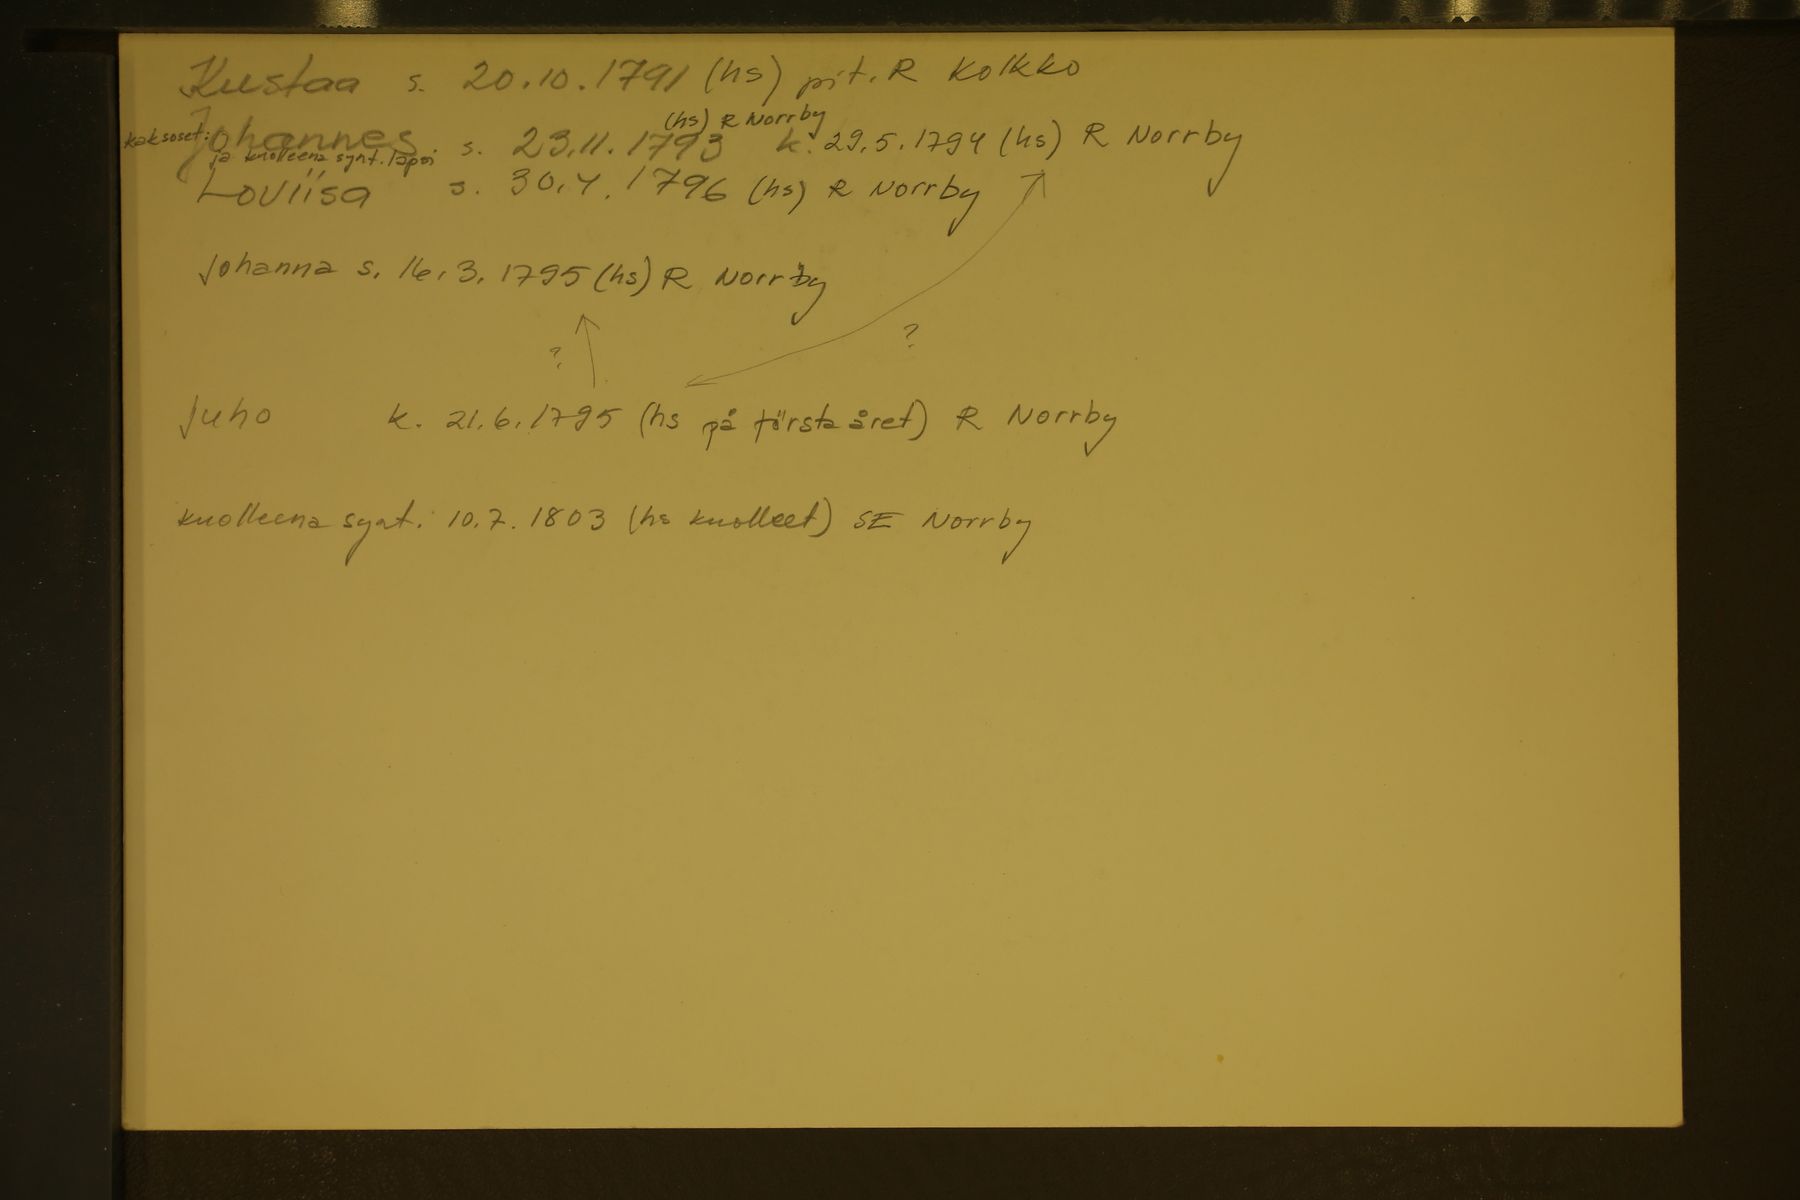 Kustaa s. 20.10.1791 (hs) pit. R Kolkko
(hs) R Norrby
kaksoset: Johannes s. 23.11.1793 k. 29.5.1794 (hs) R Norrby
ja kuolleena synt. lapsi
Loviisa s. 30.4.1796 (hs) R Norrby
Johanna s. 16.3.1795 (hs) R Norrby
?
?
Juho k. 21.6.1795 (hs på första året) R Norrby
kuolleena synt. 10.7.1803 (hs kuolleet) SE Norrby